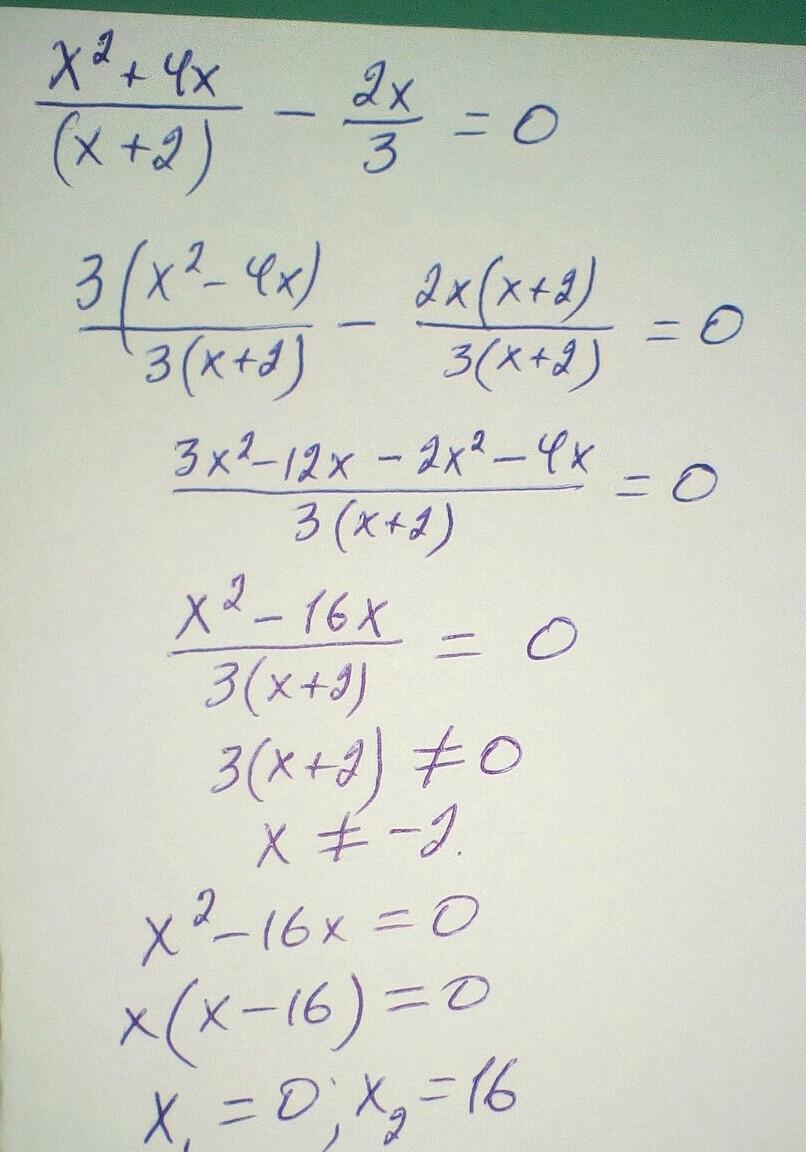 (x²+4x)/((x+2)) - 2x/3 = 0
3(x²-4x)/3(x+2) - 2x(x+2)/3(x+2) = 0
(3x²-12x-2x²-4x)/3(x+2) = 0
(x²-16x)/3(x+2) = 0
3(x+2) ≠ 0
x ≠ -2.
x²-16x=0
x(x-16)=0
x₁=0; x₂=16